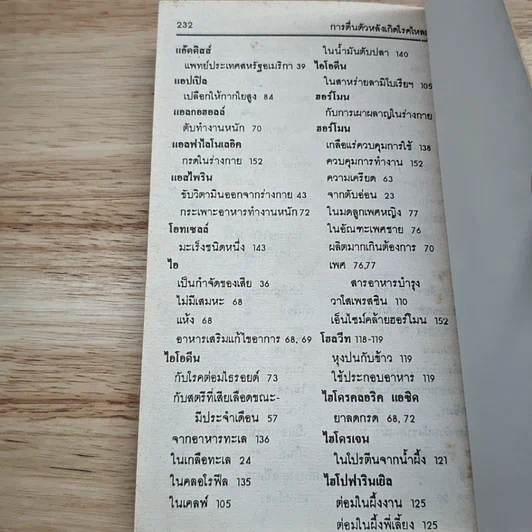 232
การตื่นตัวหลังเกิดโรคไหล
แอ๊ดดิสส์
แพทย์ประเทศสหรัฐอเมริกา 39
แอปเปิล
เปลือกให้กากใยสูง 84
แอลกอฮอลล์
ตับทำงานหนัก 70
แอลฟาไลโนเลอิค
กรดในร่างกาย 152
แอสไพริน
ขับวิตามินออกจากร่างกาย 43
กระเพาะอาหารทำงานหนัก 72
โอทเซลล์
มะเร็งชนิดหนึ่ง 143
ไอ
เป็นกำจัดของเสีย 36
ไม่มีเสมหะ 68
แห้ง 68
อาหารเสริมแก้ไขอาการ 68, 69
ไอโอดีน
กับโรคต่อมไธรอยด์ 73
กับสตรีที่เสียเลือดขณะ-
มีประจำเดือน 57
จากอาหารทะเล 136
ในเกลือทะเล 24
ในคลอโรฟีล 135
ในเคลพ์ 105
ในน้ำมันตับปลา 140
ไอโอดีน
ในสาหร่ายลามิไบเรียฯ 105
ฮอร์โมน
กับการเผาผลาญในร่างกาย
ฮอร์โมน
เกลือแร่ควบคุมการใช้ 138
ควบคุมการทำงาน 152
ความเครียด 63
จากตับอ่อน 23
ในมดลูกเพศหญิง 77
ในอัณฑะเพศชาย 76
ผลิตมากเกินต้องการ 70
เพศ 76,77
สารอาหารบำรุง
วาโสเพรสซิน 110
เอ็นไซม์คล้ายฮอร์โมน 152
โฮลวีท 118-119
หุงปนกับข้าว 119
ใช้ประกอบอาหาร 119
ไฮโดรคลอริค แอซิด
ยาลดกรด 68, 72
ไฮโดรเจน
ในโปรตีนจากน้ำผึ้ง 121
ไฮโปฟารินเยิล
ต่อมในผึ้งงาน 125
ต่อมในผึ้งพี่เลี้ยง 125